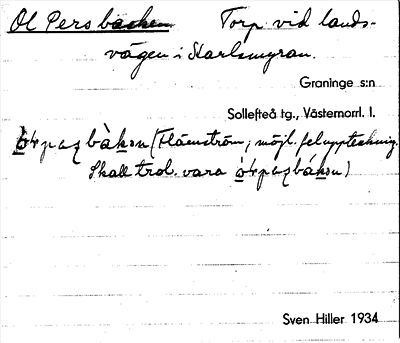 Ol Persbacken Torp vid lands-
vägen i Starlsmyran.
Graninge s:n
Sollefteå tg., Västernorrl. l.
bàkǝn (Flämström; möjl. feluppteckning.
Skall trol. vara
Sven Hiller 1934